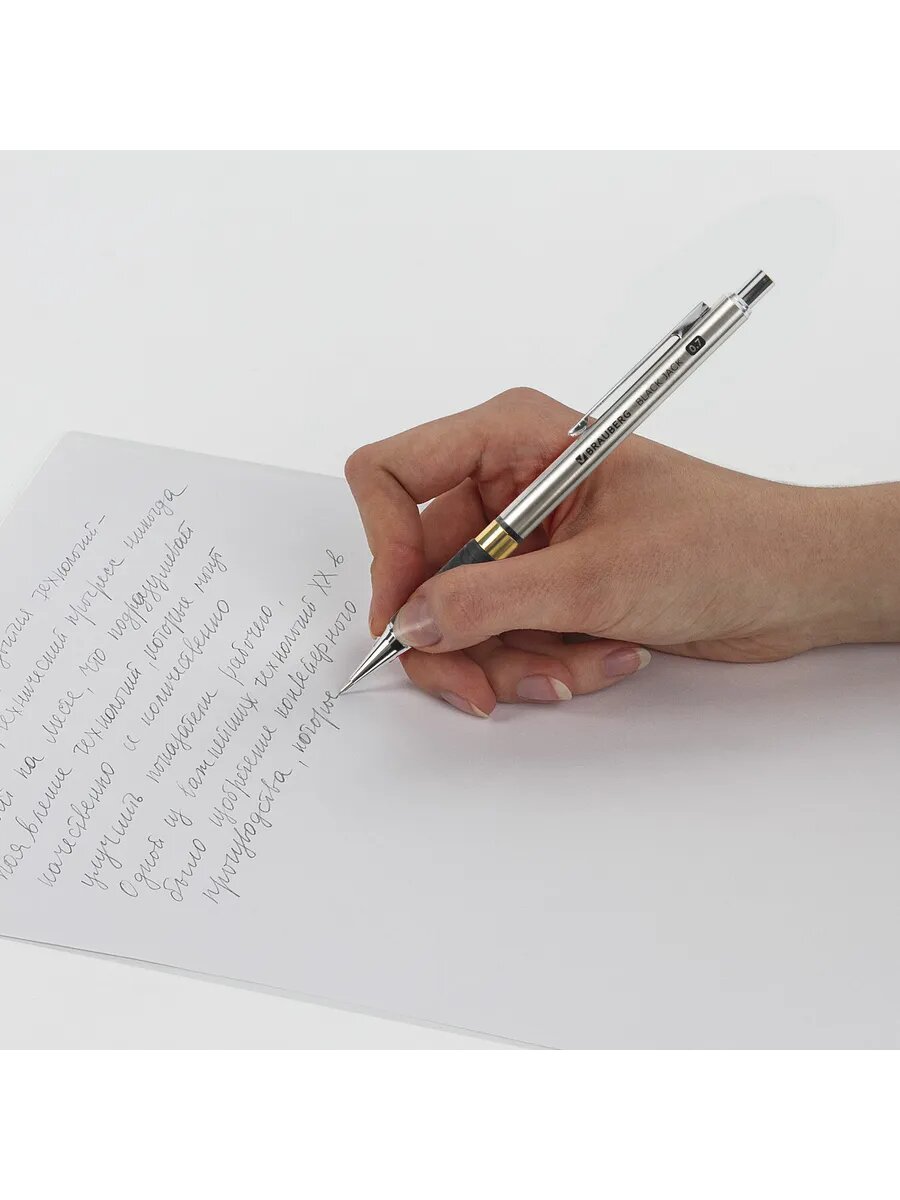 технологий -
технический прогресс никогда
на месте, что подразумевает
появление технологий, которые могут
качественно и количественно
улучшить показатели работы.
Одной из важнейших технологий XX в
было изобретение конвейерного
производства, которое
BRAUBERG BLACK JACK 0.7